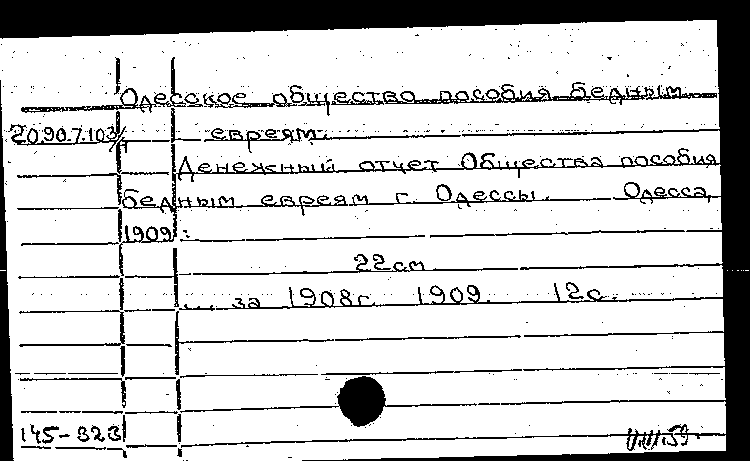 Одесское общество пособия бедным
20.90.7.103/1 евреям.
Денежный отчет Общества пособия
бедным евреям г. Одессы. Одесса,
1909.:
22см
... за 1908г. 1909. 12с.
145-823